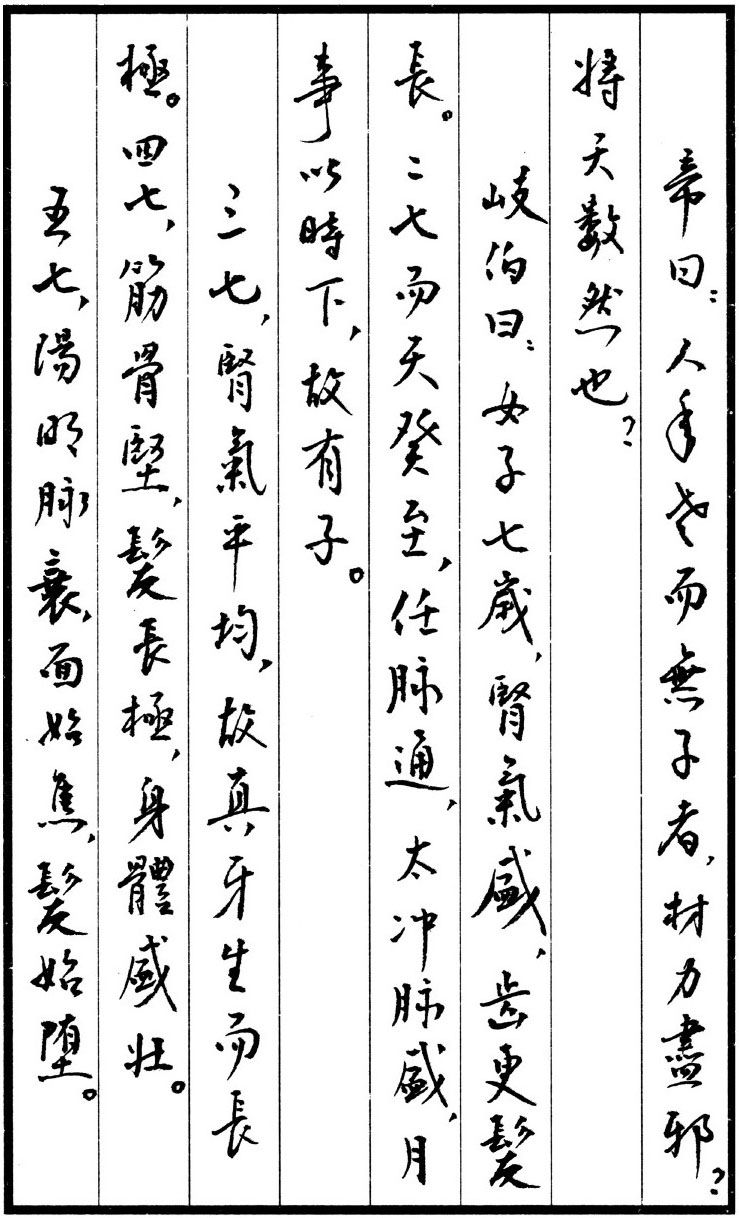 帝曰：人年老而無子者，材力盡邪？
將天數然也？
岐伯曰：女子七歲，腎氣盛，齒更髮
長。二七而天癸至，任脉通，太冲脉盛，月
事以時下，故有子。
三七，腎氣平均，故真牙生而長
極。四七，筋骨堅，髮長極，身體盛壯。
五七，陽明脉衰，面始焦，髮始墮。